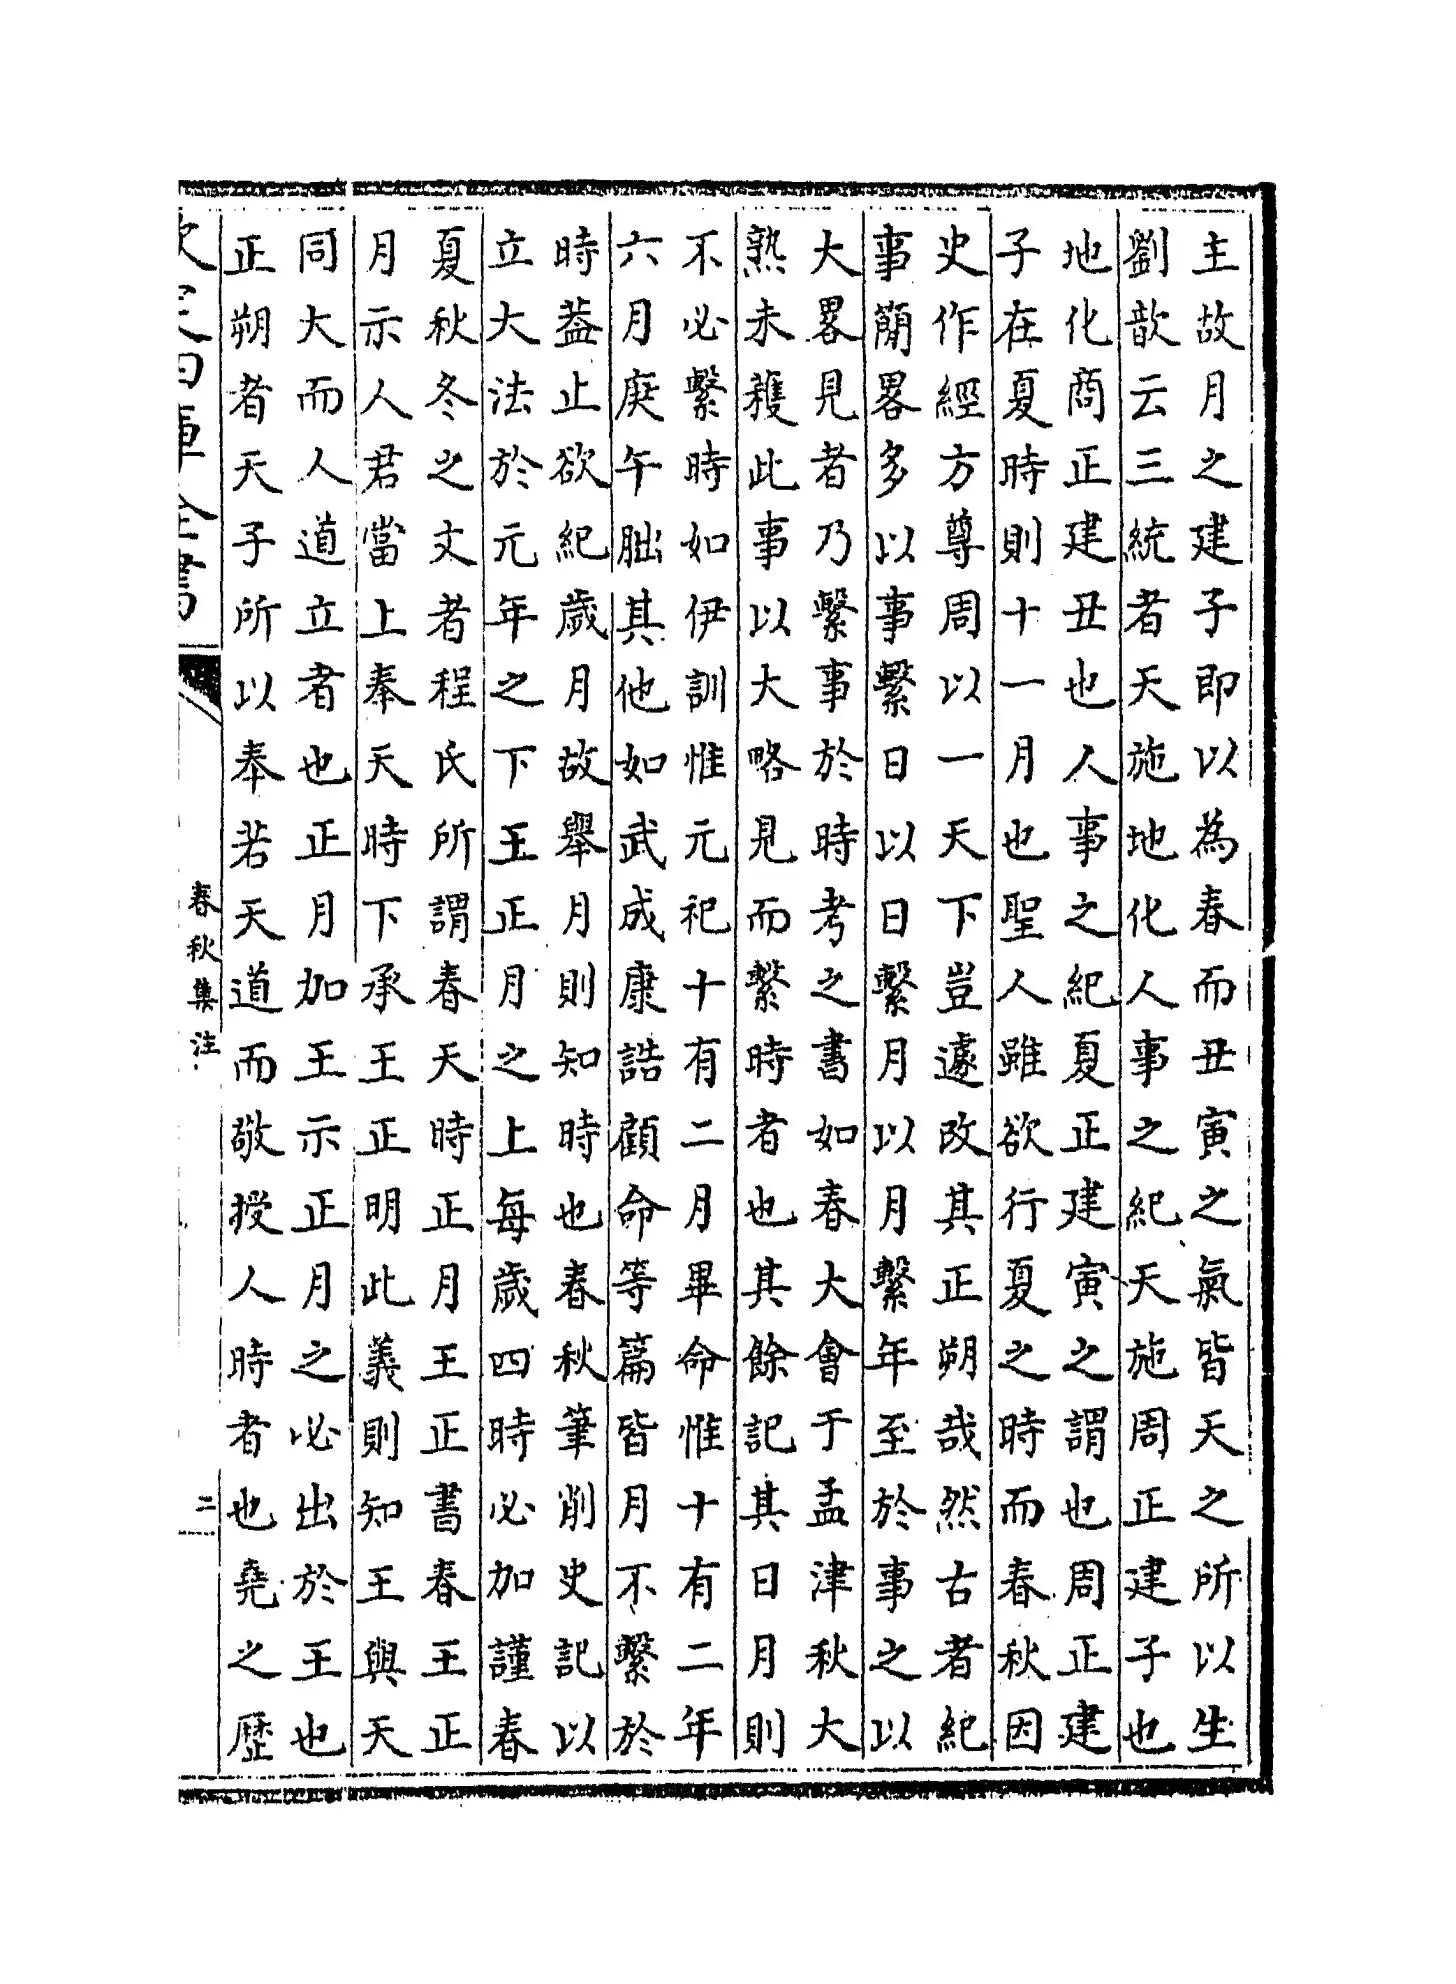 主故月之建子即以為春而丑寅之氣皆天之所以生
劉歆云三統者天施地化人事之紀天施周正建子也
地化商正建丑也人事之紀夏正建寅之謂也周正建
子在夏時則十一月也聖人雖欲行夏之時而春秋因
史作經方尊周以一天下豈遽改其正朔哉然古者紀
事簡畧多以事繫日以日繫月以月繫年至於事之以
大畧見者乃繫事於時考之書如春大會于孟津秋大
熟未穫此事以大略見而繫時者也其餘記其日月則
不必繫時如伊訓惟元祀十有二月畢命惟十有二年
六月庚午朏其他如武成康誥顧命等篇皆月不繫於
時葢止欲紀歲月故舉月則知時也春秋筆削史記以
立大法於元年之下王正月之上每歲四時必加謹春
夏秋冬之文者程氏所謂春天時正月王正書春王正
月示人君當上奉天時下承王正明此義則知王與天
同大而人道立者也正月加王示正月之必出於王也
正朔者天子所以奉若天道而敬授人時者也堯之歷
欽定四庫全書
春秋集注
二